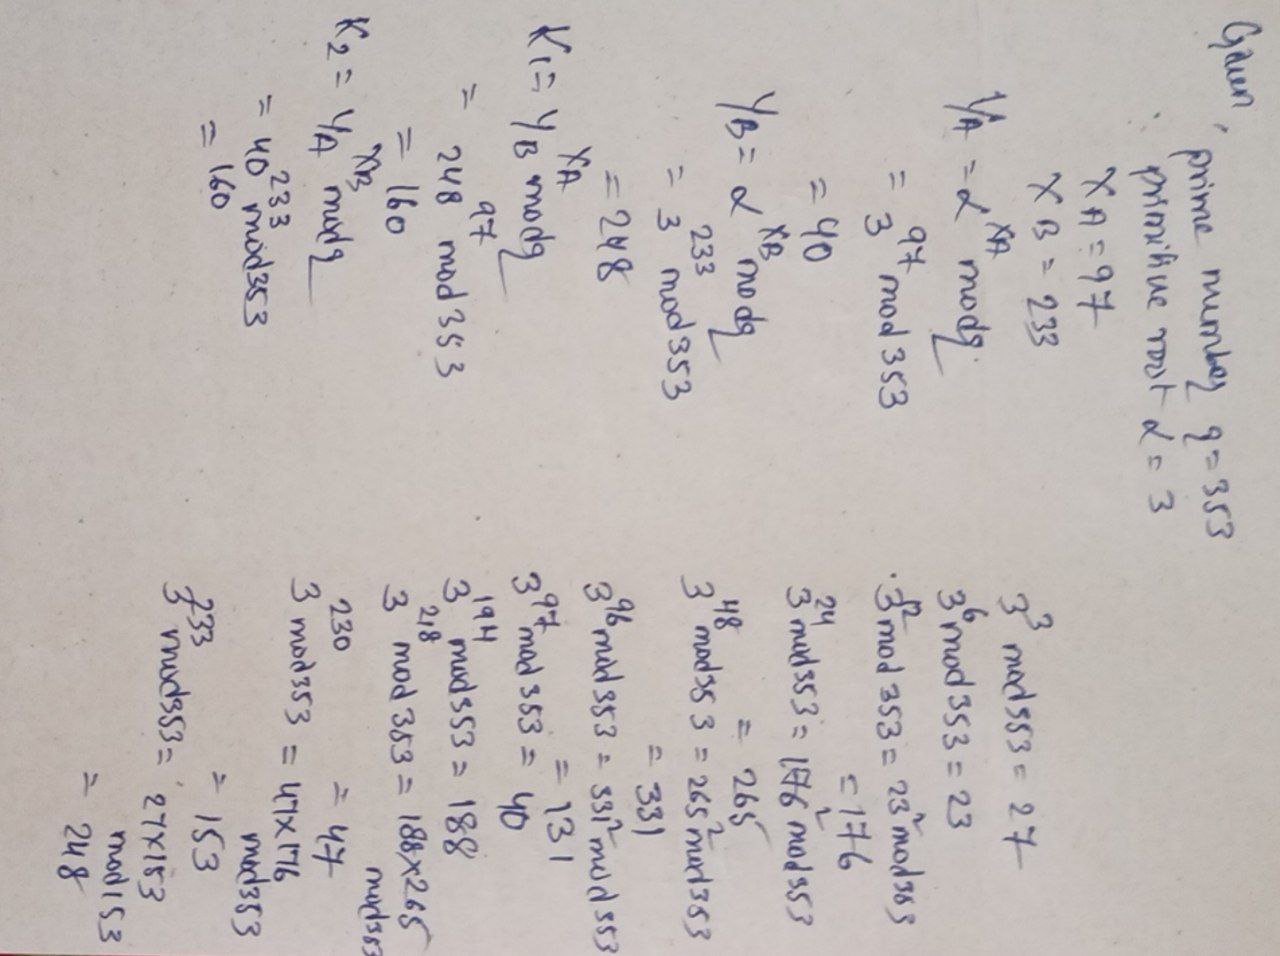 Given,
prime number q = 353
primitive root α = 3
XA = 97
XB = 233
YA = α^XA mod q
= 3^97 mod 353
= 40
YB = α^XB mod q
= 3^233 mod 353
= 248
K1 = YB^XA mod q
= 248^97 mod 353
= 160
K2 = YA^XB mod q
= 40^233 mod 353
= 160
3^3 mod 353 = 27
3^6 mod 353 = 23
3^12 mod 353 = 23^2 mod 353
= 176
3^24 mod 353 = 176^2 mod 353
= 265
3^48 mod 353 = 265^2 mod 353
= 331
3^96 mod 353 = 331^2 mod 353
= 131
3^97 mod 353 = 40
3^194 mod 353 = 188
3^218 mod 353 = 188×265
mod 353
= 47
3^230 mod 353 = 47×176
mod 353
= 153
3^233 mod 353 = 27×153
mod 153
= 248